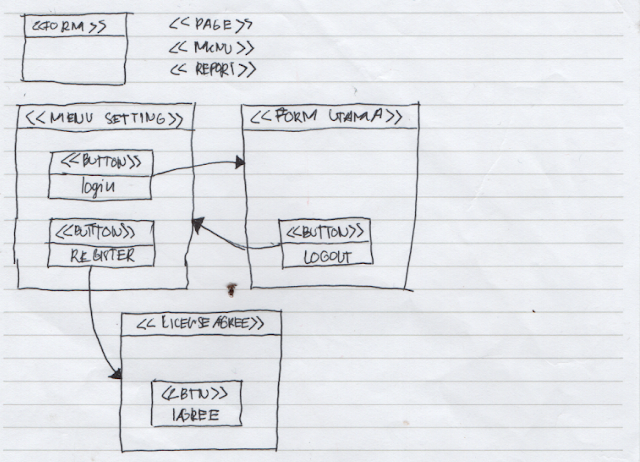 <<FORM>>
<<PAGE>>
<<MENU>>
<<REPORT>>
<<MENU SETTING>>
<<BUTTON>>
login
<<BUTTON>>
REGISTER
<<FORM UTAMA>>
<<BUTTON>>
LOGOUT
<<LICENSE AGREE>>
<<BTN>>
IAGREE